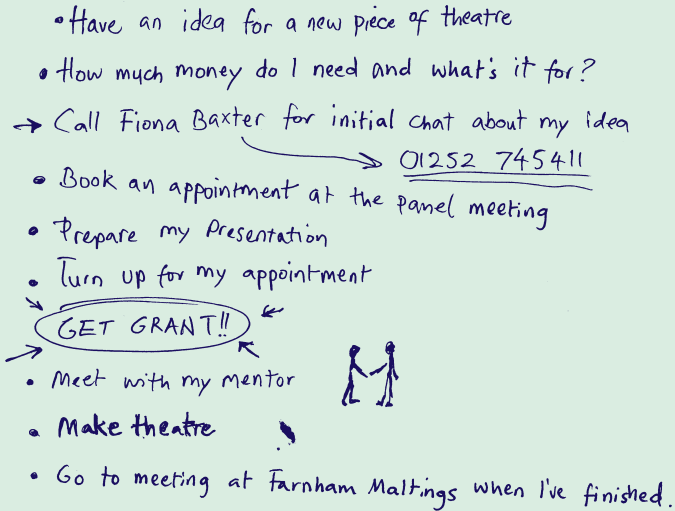 • Have an idea for a new piece of theatre
• How much money do I need and what's it for?
→ Call Fiona Baxter for initial chat about my idea
01252 745411
• Book an appointment at the panel meeting
• Prepare my Presentation
• Turn up for my appointment
GET GRANT!!
• Meet with my mentor
• Make theatre
• Go to meeting at Farnham Maltings when I've finished.